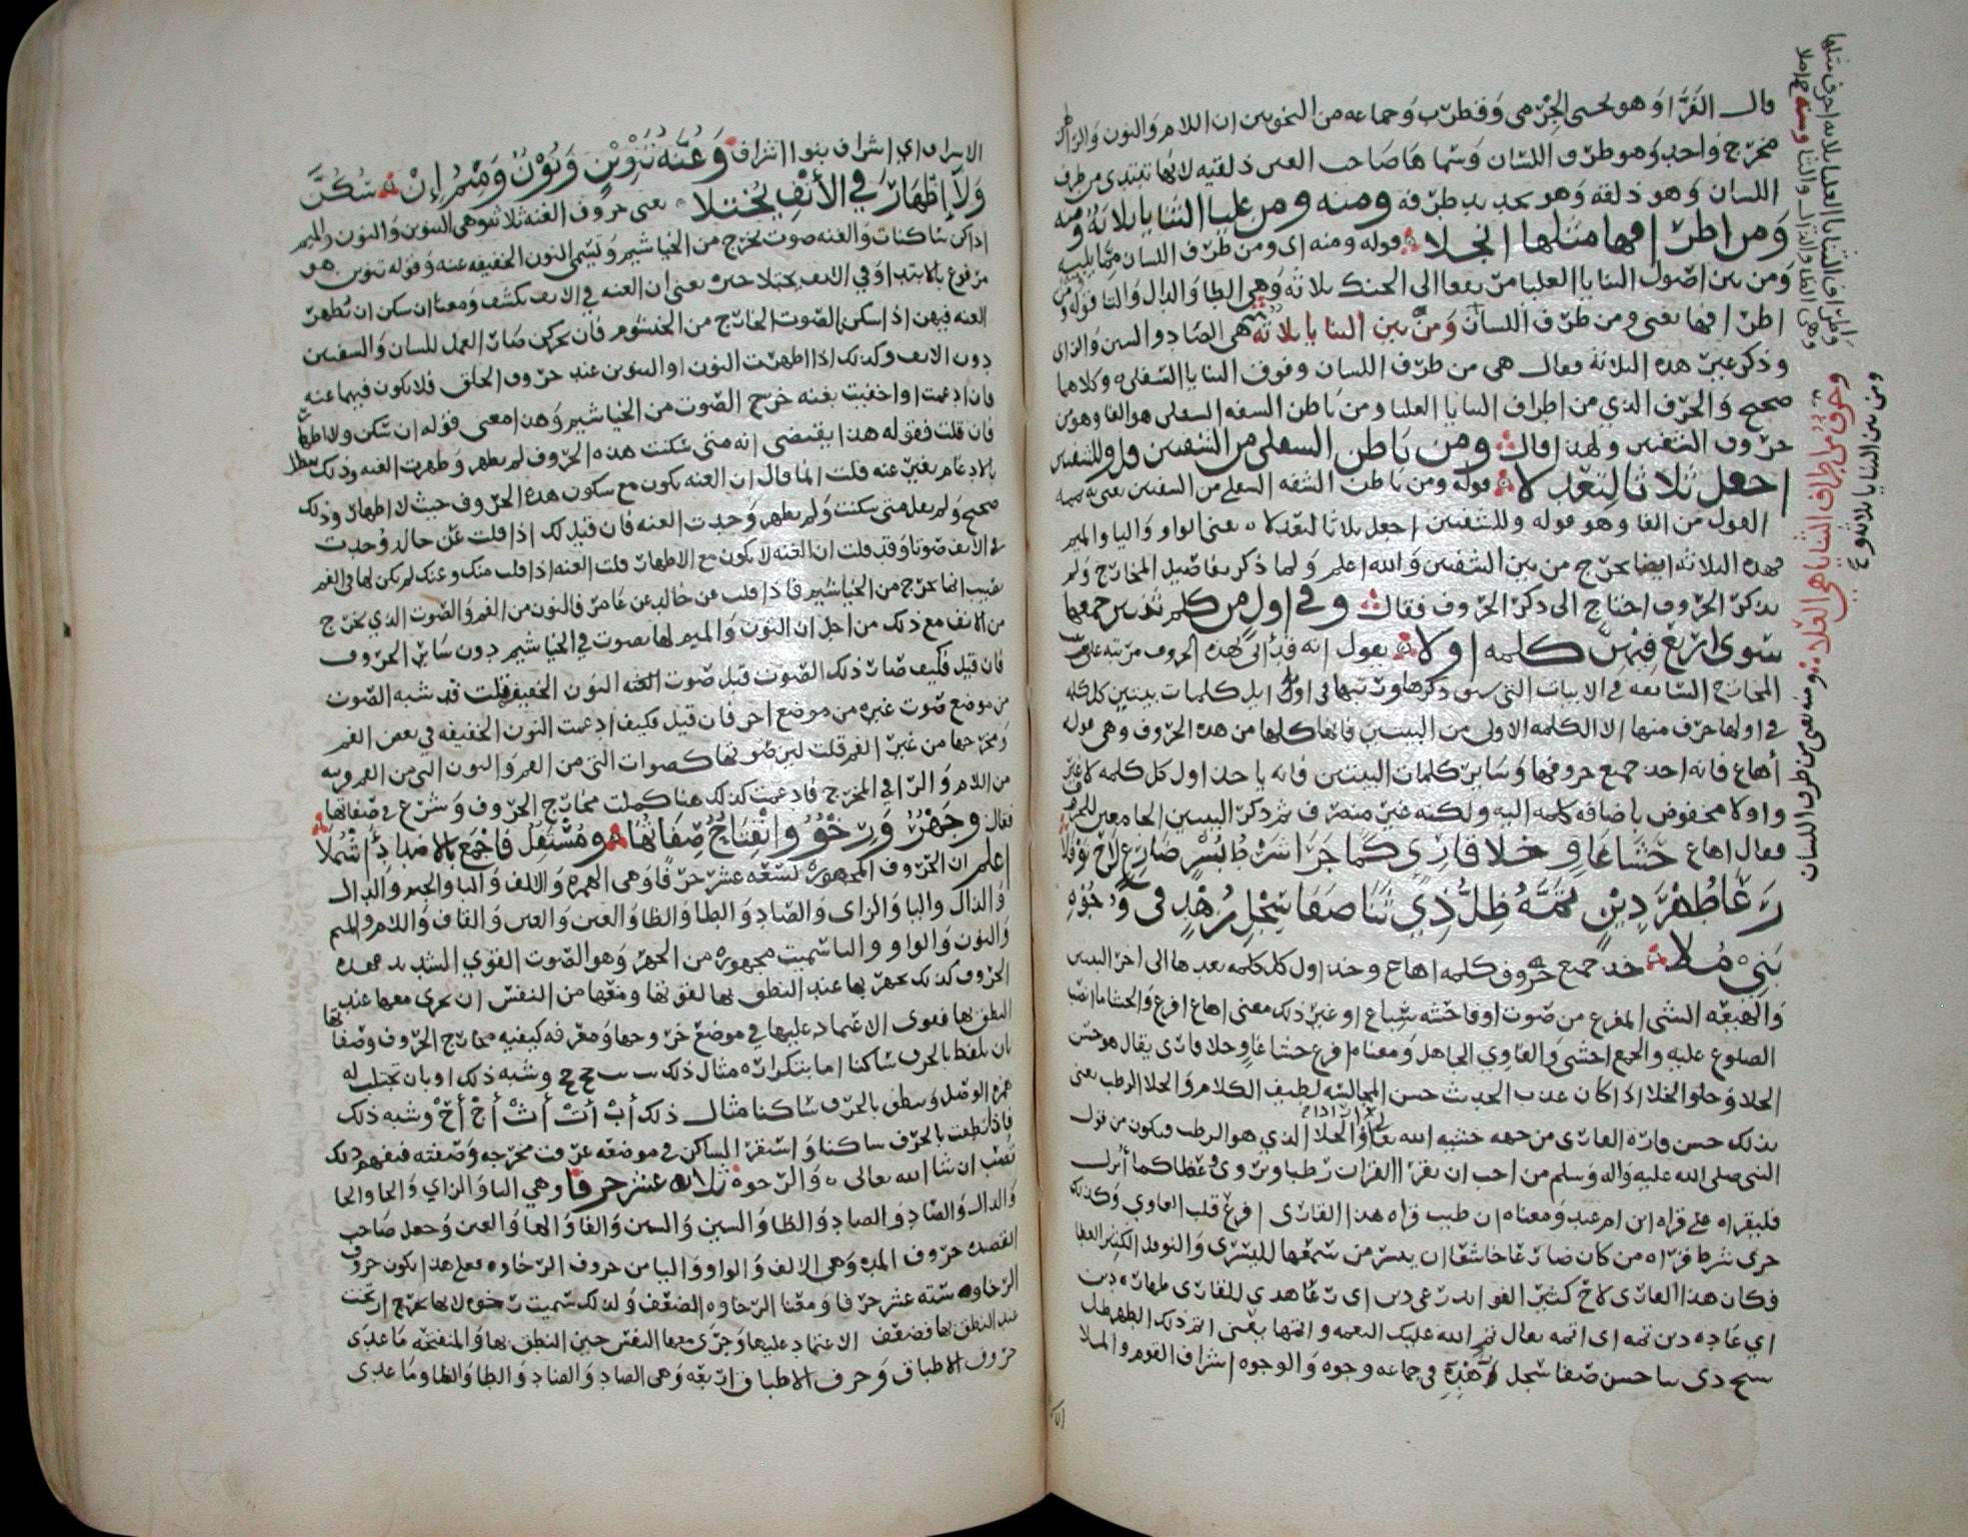 قال الفرا وهو يحيى الجرمي وقطرب وجماعه من النحويين ان اللام والنون والرا
مخرج واحد وهو طرف اللسان وسماها صاحب العين ذلقيه لانها تبتدى من طرف
اللسان وهو ذلقه وهو تحديد طرفه ومنه ومن عليا الثنايا ثلاثة ومنه
ومن اطرافها مثلها انجلا قوله ومنه اى ومن طرف اللسان مما يليه
ومن بين اصول الثنايا العليا مرتفعا الى الحنك ثلاثه وهي الطا والدال والتا قوله ومن
اطرافها يعنى ومن طرف اللسان ومن بين الثنايا ثلاثه هي الصاد والسين والزاى
وذكر غير هذه الثلاثة فقال هي من طرف اللسان وفوق الثنايا السفلى وكلاهما
صحيح والحرف الذي من اطراف الثنايا العليا ومن باطن الشفه السفلى هو الفا وهو من
حروف الشفتين ولهذا قال ومن باطن السفلى من الشفتين قل وللشفتين
اجعل ثلاثا لتعدلا قوله ومن باطن الشفه السفلى من الشفتين يعنى به
القول من الفا وهو قوله وللشفتين اجعل ثلاثا لتعدلا يعنى الواو والبا والميم
فهذه الثلاثه ايضا تخرج من بين الشفتين والله اعلم ولما ذكر تفاصيل المخارج ولم
يذكر الحروف احتاج الى ذكر الحروف فقال وفي اول من كلم بيتين جمعها
سوى اربع فيهن كلمه اولا يقول انه قد اتى بهذه الحروف مرتبه على
المخارج السابقه في الابيات التي سبق ذكرها ورتبها في اوايل كلمات بيتين كل كلمه
في اولها حرف منها الا الكلمه الاولى من البيتين فانها كلها من هذه الحروف وهى قوله
أهاع فانه اخذ جميع حروفها وساير كلمات البيتين فانه ياخذ اول كل كلمه لا غير
واولا مخفوض باضافه كلمه اليه ولكنه غير منصرف ثم ذكر البيتين الجامعين للحروف
فقال اهاع حشا غاو خلا قارى كما جرا شرط يسر ضارع لاح نوفلا
رعا طهر دين تمه ظل ذي ثنا صفا سجل زهد في وجوه
بني ملا خذ جميع حروف كلمه اهاع وخذ اول كل كلمه بعدها الى اخر البيتين
والهيعه الشى المفزع من صوت او فاحشه تشاع او غير ذلك معنى اهاع افزع والحشا ما انضمت
الضلوع عليه والجمع احشى والغاوي الجاهل ومعناه افزع حشا غاو وحلا قارى يقال هو حسن
الخلا وحلو الخلا اذا كان عذب الحديث حسن المجالسه لطيف الكلام والخلا الرطب يعنى
بذلك حسن قراه القارى من جهه خشيه الله تعالى والخلا الذي هو الرطب فيكون من قول
النبي صلى الله عليه واله وسلم من احب ان يقرا القران رطبا ويروى غضا كما أنزل
فليقراه على قراه ابن ام عبد ومعناه ان طيب قراه هذا القارى افزع قلب الغاوي وكذلك
جرى شرط قراه من كان ضارعا خاشعا ان ييسر من سمعها لليسرى والنوفل الكثير العطا
فكان هذا القارى لاح كثير الفوايد رعى دين اى رعا هدي للقارى طهاره دين
اي عاده دين تمه اى اتمه يقال تم الله عليك النعمه واتمها بمعنى اتم ذلك الطهر ظل
شيخ ذى ثنا حسن صفا سجل زهده في جماعه وجوه والوجوه اشراف القوم والملا
وطرف الثنايا العليا ثلاثه احرف مثلها
وهي الظا والذال والثا
وحرف من اطراف الثنايا هي العلا ومنه يعنى من طرف اللسان
ومن بين الثنايا ثلاثه
الاشراف اي اشراف بنوا اشراف وغنه تنوين ونون وميم إن سكن
ولا إظهار في الأنف يجتلا يعنى حروف الغنه ثلاثه وهي التنوين والنون والميم
اذا كن ساكنات والغنه صوت يخرج من الخياشيم وتسمى النون الخفيفه غنه وقوله تنوين هو
مرفوع بالابتدا وفي الانف يجتلا خبره يعنى ان الغنه في الانف تكشف ومعنا ان سكن ان تظهر
الغنه فيهن اذا سكن الصوت الخارج من الخيشوم فان تحركن صار العمل للسان والشفتين
دون الانف وكذلك اذا اظهرت النون او التنوين عند حروف الحلق فلا يكون فيهما غنه
فان ادغمت او اخفيت بغنه خرج الصوت من الخياشيم وهذا معنى قوله ان سكن ولا اظهار
فان قلت فقوله هذا يقتضى انه متى سكنت هذه الحروف لم يظهر وظهرت الغنه وذلك يبطل
بالادغام بغير غنه قلت انما قال ان الغنه تكون مع سكون هذه الحروف حيث لا اظهار وذلك
صحيح ولم يقل متى سكنت ولم يظهر وجدت الغنه فان قيل لك اذا قلت عن خالد وجدت
في الانف صوتا وقد قلت ان الغنه لا تكون مع الاظهار قلت الغنه اذا قلت منك وعنك لم يكن لها في الفم
نصيب انما تخرج من الخياشيم فاذا قلت عن خالد عن عامر فالنون من الفم والصوت الذي يخرج
من الانف مع ذلك من اجل ان النون والميم لها تصوت في الخياشيم دون ساير الحروف
فان قيل فكيف صار ذلك الصوت قبل صوت الغنه النون الخفيفه قلت قد شبه الصوت
من موضع صوت غيره من موضع اخر فان قيل فكيف ادغمت النون الخفيفه في بعض الفم
ومخرجها من غير الفم قلت لان صوتها كصوات التى من الفم والنون التى من الفم قريبه
من اللام والرا في المخرج فادغمت كذلك هنا كملت مخارج الحروف وشرع في صفاتها
فقال وجهر ورخو وانفتاح صفاتها ومستفل فاجمع بالاضداد أشملا
اعلم ان الحروف المجهورة تسعه عشر حرفا وهي الهمزه والالف والبا والجيم والدال
والذال واليا والزاى والضاد والطا والظا والعين والغين والقاف واللام والميم
والنون والواو والرا سميت مجهوره من الجهر وهو الصوت القوي الشديد فهذه
الحروف كذلك يجهر بها عند النطق بها لقوتها ومنعها من النفس ان يجرى معها عند
النطق بها فقوى الاعتماد عليها في موضع خروجها ومعرفه كيفيه مخارج الحروف وصفاتها
بان تلفظ بالحرف ساكنا اما بتكراره مثال ذلك ب ب ج ج وشبه ذلك او بان تجتلب له
همزه الوصل وتنطق بالحرف ساكنا مثال ذلك أب أت أث أج أخ وشبه ذلك
فاذا نطقت بالحرف ساكنا واستقر الساكن في موضعه عرفت مخرجه وصفته فتفهم ذلك
تصب ان شا الله تعالى والرخوة ثلاثه عشر حرفا وهي الثا والزاي والحا والخا
والذال والصاد والضاد والظا والسين والشين والفا والها والغين وجعل صاحب
القصيده حروف المد وهي الالف والواو واليا من حروف الرخاوه فعلى هذا يكون حروف
الرخاوه سته عشر حرفا ومعنا الرخاوه الضعف ولذلك سميت رخوه لانها تخرج
عند النطق بها فضعف الاعتماد عليها وجرى معها النفس حين النطق بها والمنفتحه ما عدى
حروف الاطباق وحرف الاطباق اربعه وهي الصاد والضاد والطا والظا وما عدى